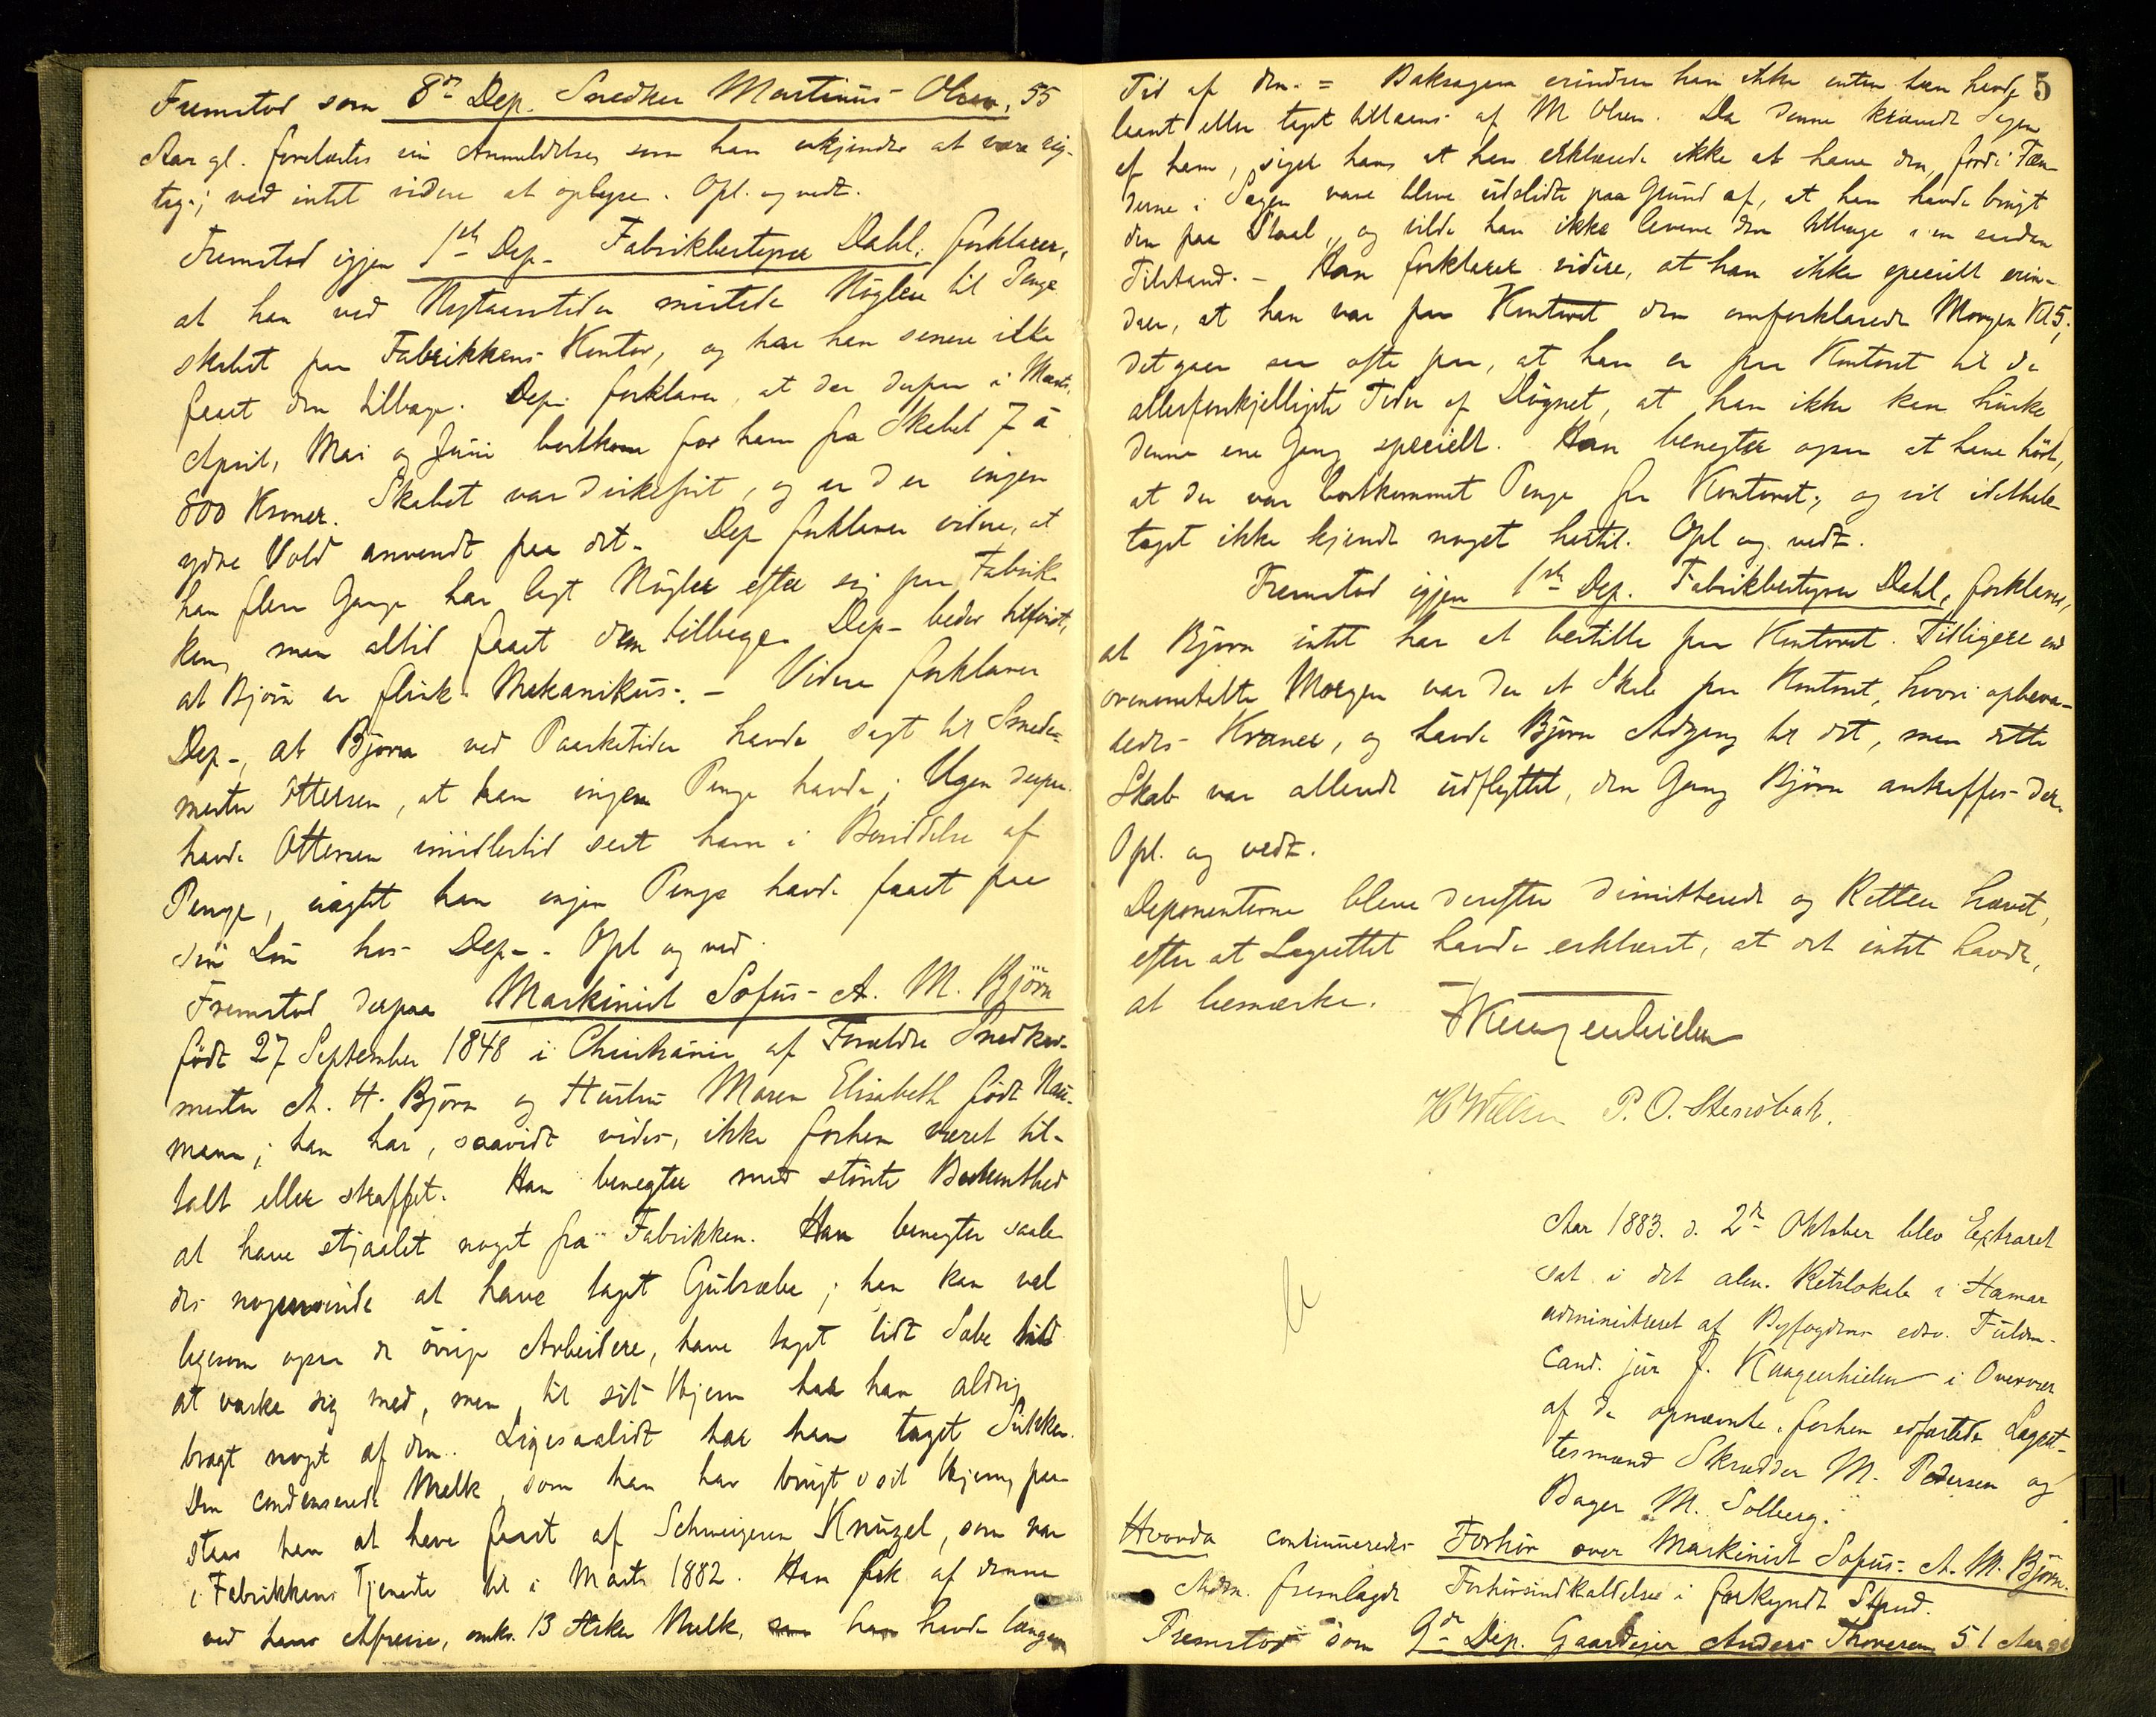 Fremstod som 8de Dep. Snedker Martinus Olsen, 55
Aar gl. forelæstes sin Anmeldelse, som han erkjender at være rig-
tig; ved intet videre at oplyse. Opl. og vedt.
Fremstod igjen 1ste Dep. Fabrikbestyrer Dahl, forklarer,
at han ved Nytaarstider mistede Nøglen til Penge
skabet paa Fabrikkens Kontor, og har han senere ikke
faaet den tilbage. Dep. forklarer, at der derpaa i Marts,
April, Mai og Juni bortkom for ham fra Skabet 7 à
800 Kroner. Skabet var dirkefrit, og er der ingen
ydre Vold anvendt paa det. Dep. forklarer videre, at
han flere Gange har lagt Nøglen efter sig paa Fabrik-
ken, men altid faaet den tilbage. Dep. beder tilført,
at Bjørn er flink Mekanikus. — Videre forklarer
Dep., at Bjørn ved Paasketider havde sagt til Smede-
mester Ottersen, at han ingen Penge havde; Ugen derpaa
havde Ottersen imidlertid seet ham i Besiddelse af
Penge, uagtet han ingen Penge havde faaet paa
sin Løn hos Dep. Opl og ved.
Fremstod derpaa Maskinist Sofus A. M. Bjørn
født 27 September 1848 i Christiania af Forældre Snedker-
mester A. H. Bjørn og Hustru Maren Elisabeth født Nau-
mann; han har, saavidt vides, ikke forhen været til-
talt eller straffet. Han benegter med største Bestemthed
at have stjaalet noget fra Fabrikken. Han benegter saale-
des nogensinde at have taget Gulsæbe; han kan vel
ligesom ogsaa de øvrige Arbeidere, have taget lidt Sæbe
at vaske sig med, men til sit Hjem har han aldrig
bragt noget af den. Ligesaalidt har han taget Sukker.
Den condenserede Melk, som han har brugt i sit Hjem, paa-
staar han at have faaet af Schweizeren Knuzel, som var
i Fabrikkens Tjeneste til i Marts 1882. Han fik af denne
ved hans Afreise, omkr. 13 Æsker Melk, han havde længere
5
Tid af den. = Baksagen erindrer han ikke enten han havde
laant eller taget tillaans af M Olsen. Da denne krævede Sagen
af ham, siger han, at han erklærede ikke at have den, fordi Tæn-
derne i Sagen vare bleve udslidte paa Grund af, at han havde brugt
den paa Staal, og vilde han ikke levere den tilbage i en saadan
Tilstand. — Han forklarer videre, at han ikke specielt erin-
drer, at han var paa Kontoret den omforklarede Morgen Kl 5;
det gaar saa ofte paa, at han er paa Kontoret til de
allerforskjelligste Tider af Døgnet, at han ikke kan huske
denne ene Gang specielt. Han benegter ogsaa at have hørt,
at der var bortkommet Penge fra Kontoret, og vil idethele
taget ikke kjende noget hertil. Opl og vedt.
Fremstod igjen 1ste Dep. Fabrikbestyrer Dahl, forklarer,
at Bjørn intet har at bestille paa Kontoret. Tidligere end
ovenomtalte Morgen var der et Skab paa Kontoret, hvori opbeva-
redes Kraner, og havde Bjørn Adgang til det, men dette
Skab var allerede udflyttet, den Gang Bjørn antraffes der.
Opl. og vedt.
Deponenterne bleve derefter dimitterede og Retten hævet,
efter at Lagrettet havde erklæret, at det intet havde
at bemærke.
P. O. Stensbak.
Aar 1883. d. 2de Oktober blev Extraret
sat i det alm. Retslokale i Hamar
administreret af Byfogdens edsv. Fuldm.
Cand. jur. J. Knagenhielm i Overvær
af de opnævnte, forhen edfæstede Lagret-
tesmænd Skrædder M. Pedersen og
Bager M. Solberg.
Hvorda continueredes Forhør over Maskinist Sofus A. M. Bjørn.
Adm. fremlagde Forhørsindkaldelse i forkyndt Stand.
Fremstod som 9de Dep. Gaardeier Anders 51 Aar gl